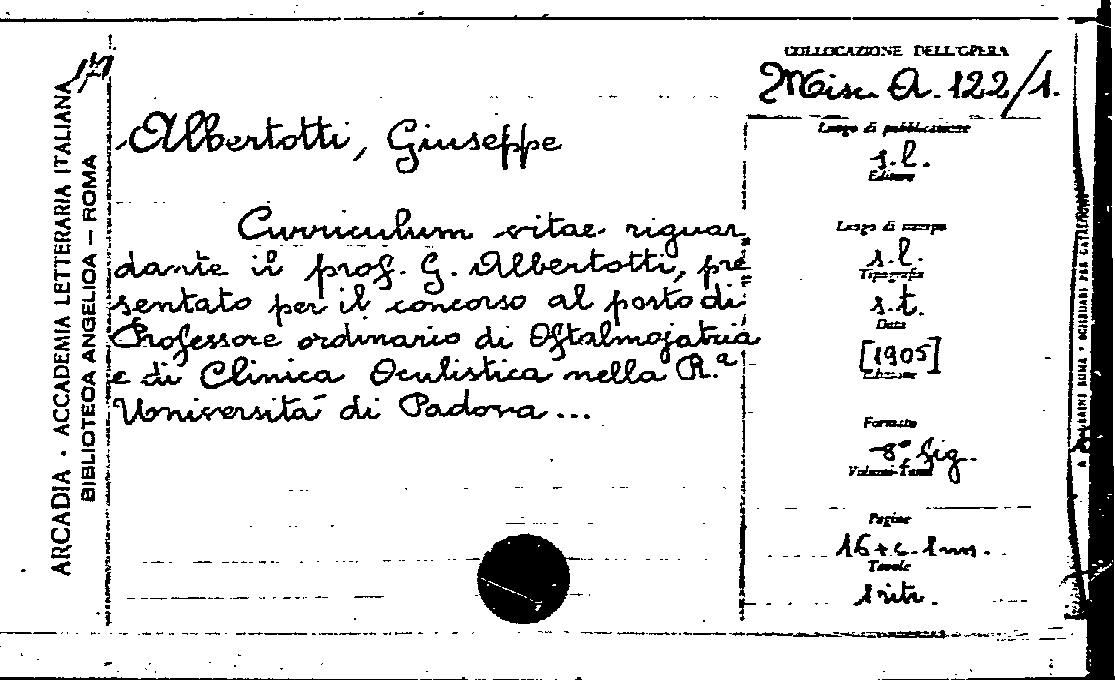 ARCADIA - ACCADEMIA LETTERARIA ITALIANA
BIBLIOTECA ANGELICA — ROMA
Albertotti, Giuseppe
Curriculum vitae riguar
dante il prof. G. Albertotti, pre
sentato per il concorso al posto di
Professore ordinario di Oftalmojatria
e di Clinica Oculistica nella R.ª
Università di Padova ...
COLLOCAZIONE DELL'OPERA
Misc. A. 122/1.
Luogo di pubblicazione
s.l.
Editore
Luogo di stampa
s.l.
Tipografia
s.t.
Data
[1905]
Edizione
Formato
8° fig.
Volumi-Tomi
Pagine
16+c.1nn.
Tavole
1 ritr.